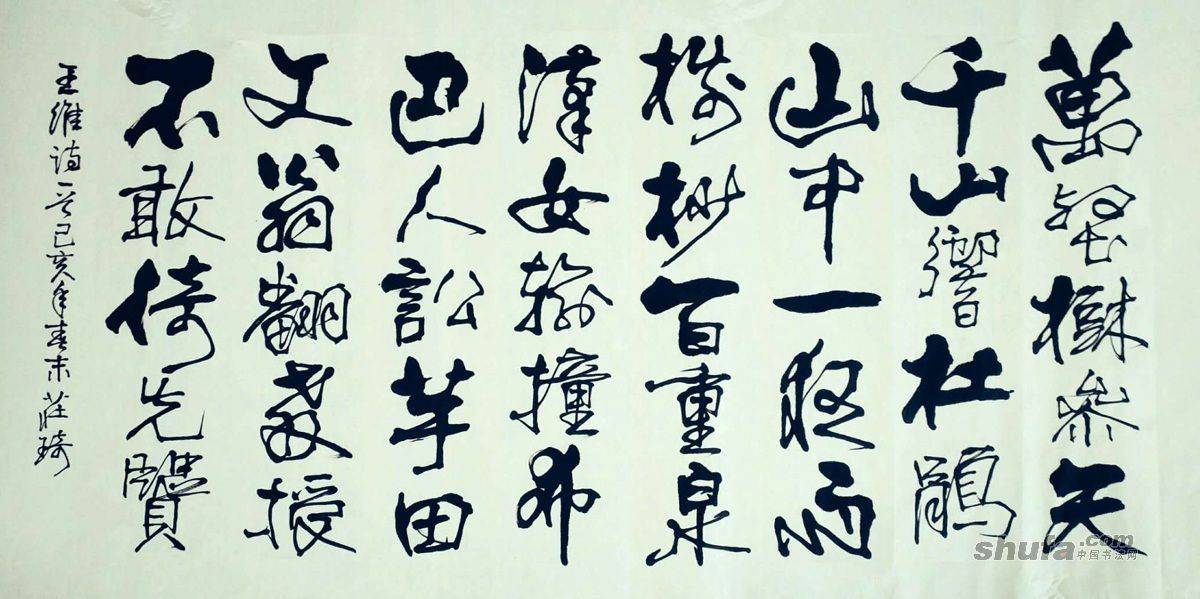 萬壑樹參天
千山響杜鵑
山中一夜雨
樹杪百重泉
漢女輸橦布
巴人訟芋田
文翁翻教授
不敢倚先賢
王維詩一首己亥年春末莊琦
shufa.com
中国书法网